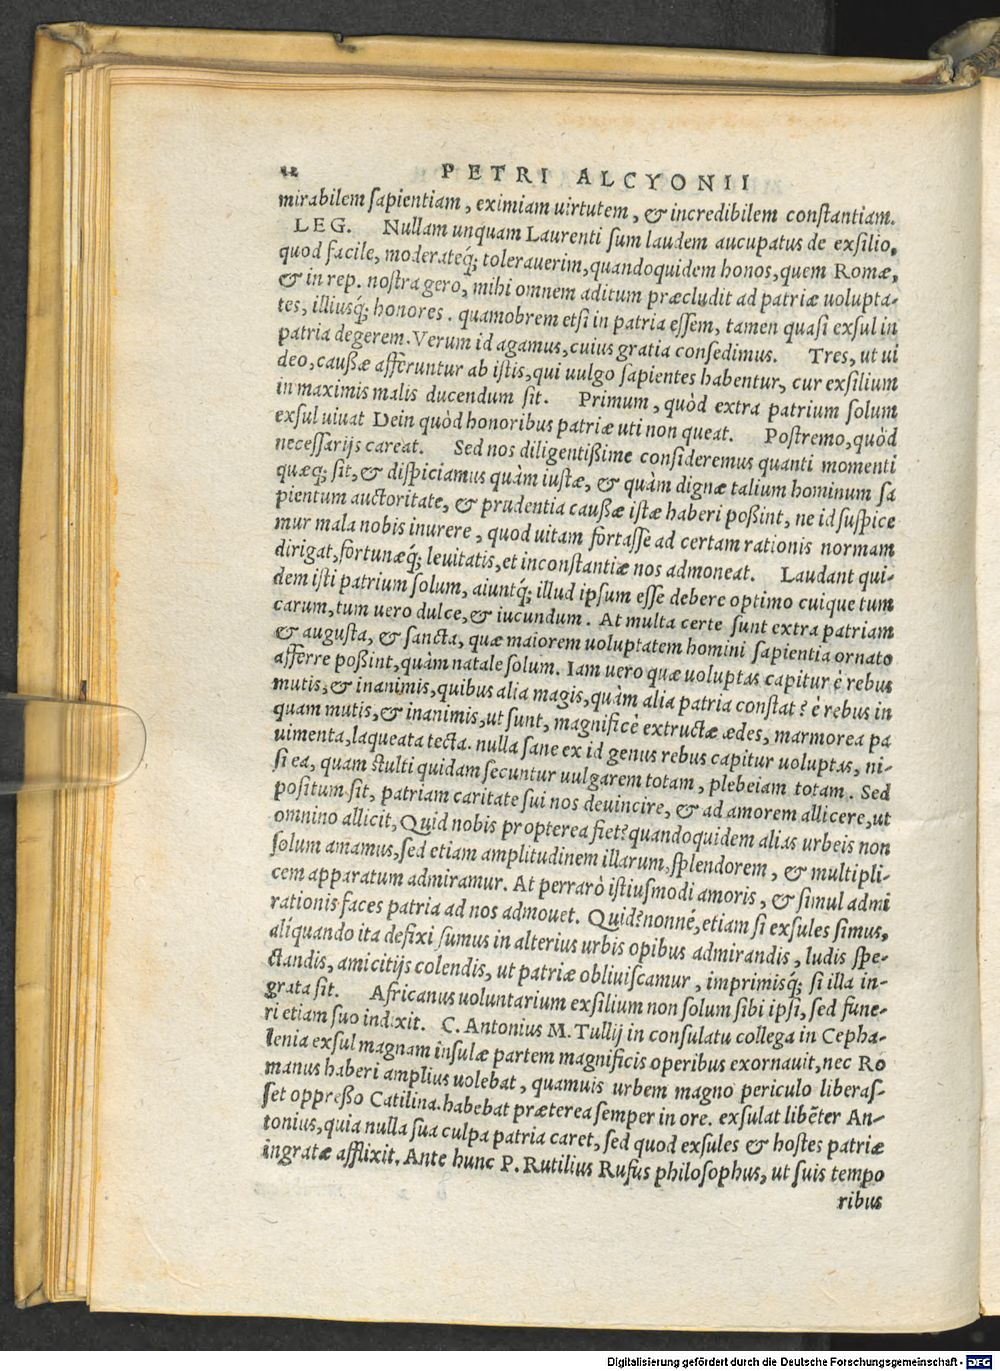 PETRI ALCYONII
mirabilem ſapientiam, eximiam uirtutem, & incredibilem conſtantiam.
LEG. Nullam unquam Laurenti ſum laudem aucupatus de exſilio,
quod facile, moderateq́; tolerauerim, quandoquidem honos, quem Romæ,
& in rep. noſtra gero, mihi omnem aditum præcludit ad patriæ uolupta-
tes, illiusq́; honores. quamobrem etſi in patria eſſem, tamen quaſi exſul in
patria degerem. Verum id agamus, cuius gratia conſedimus. Tres, ut ui
deo, cauſſæ afferuntur ab iſtis, qui uulgo ſapientes habentur, cur exſilium
in maximis malis ducendum ſit. Primum, quòd extra patrium ſolum
exſul uiuat Dein quòd honoribus patriæ uti non queat. Poſtremo, quòd
neceſſarijs careat. Sed nos diligentißime conſideremus quanti momenti
quæq; ſit, & diſpiciamus quàm iuſtæ, & quàm dignæ talium hominum ſa
pientum auctoritate, & prudentia cauſſæ iſtæ haberi poßint, ne id ſuſpice
mur mala nobis inurere, quod uitam fortaſſe ad certam rationis normam
dirigat, fortunæq́; leuitatis, et inconſtantiæ nos admoneat. Laudant qui-
dem iſti patrium ſolum, aiuntq́; illud ipſum eſſe debere optimo cuique tum
carum, tum uero dulce, & iucundum. At multa certe ſunt extra patriam
& auguſta, & ſancta, quæ maiorem uoluptatem homini ſapientia ornato
afferre poßint, quàm natale ſolum. Iam uero quæ uoluptas capitur è rebus
mutis, & inanimis, quibus alia magis, quàm alia patria conſtat? è rebus in
quam mutis, & inanimis, ut ſunt, magnificè extructæ ædes, marmorea pa
uimenta, laqueata tecta. nulla ſane ex id genus rebus capitur uoluptas, ni-
ſi ea, quam ſtulti quidam ſecuntur uulgarem totam, plebeiam totam. Sed
poſitum ſit, patriam caritate ſui nos deuincire, & ad amorem allicere, ut
omnino allicit, Quid nobis propterea fiet? quandoquidem alias urbeis non
ſolum amamus, ſed etiam amplitudinem illarum, ſplendorem, & multipli-
cem apparatum admiramur. At perrarò iſtiuſmodi amoris, & ſimul admi
rationis faces patria ad nos admouet. Quid? nonné, etiam ſi exſules ſimus,
aliquando ita defixi ſumus in alterius urbis opibus admirandis, ludis ſpe-
ctandis, amicitijs colendis, ut patriæ obliuiſcamur, imprimisq́; ſi illa in-
grata ſit. Africanus uoluntarium exſilium non ſolum ſibi ipſi, ſed fune-
ri etiam ſuo indixit. C. Antonius M. Tullij in conſulatu collega in Cepha-
lenia exſul magnam inſulæ partem magnificis operibus exornauit, nec Ro
manus haberi amplius uolebat, quamuis urbem magno periculo liberaſ-
ſet oppreßo Catilina. habebat præterea ſemper in ore. exſulat libẽter An-
tonius, quia nulla ſua culpa patria caret, ſed quod exſules & hoſtes patriæ
ingratæ afflixit. Ante hunc P. Rutilius Rufus philoſophus, ut ſuis tempo
ribus
Digitalisierung gefördert durch die Deutsche Forschungsgemeinschaft - DFG